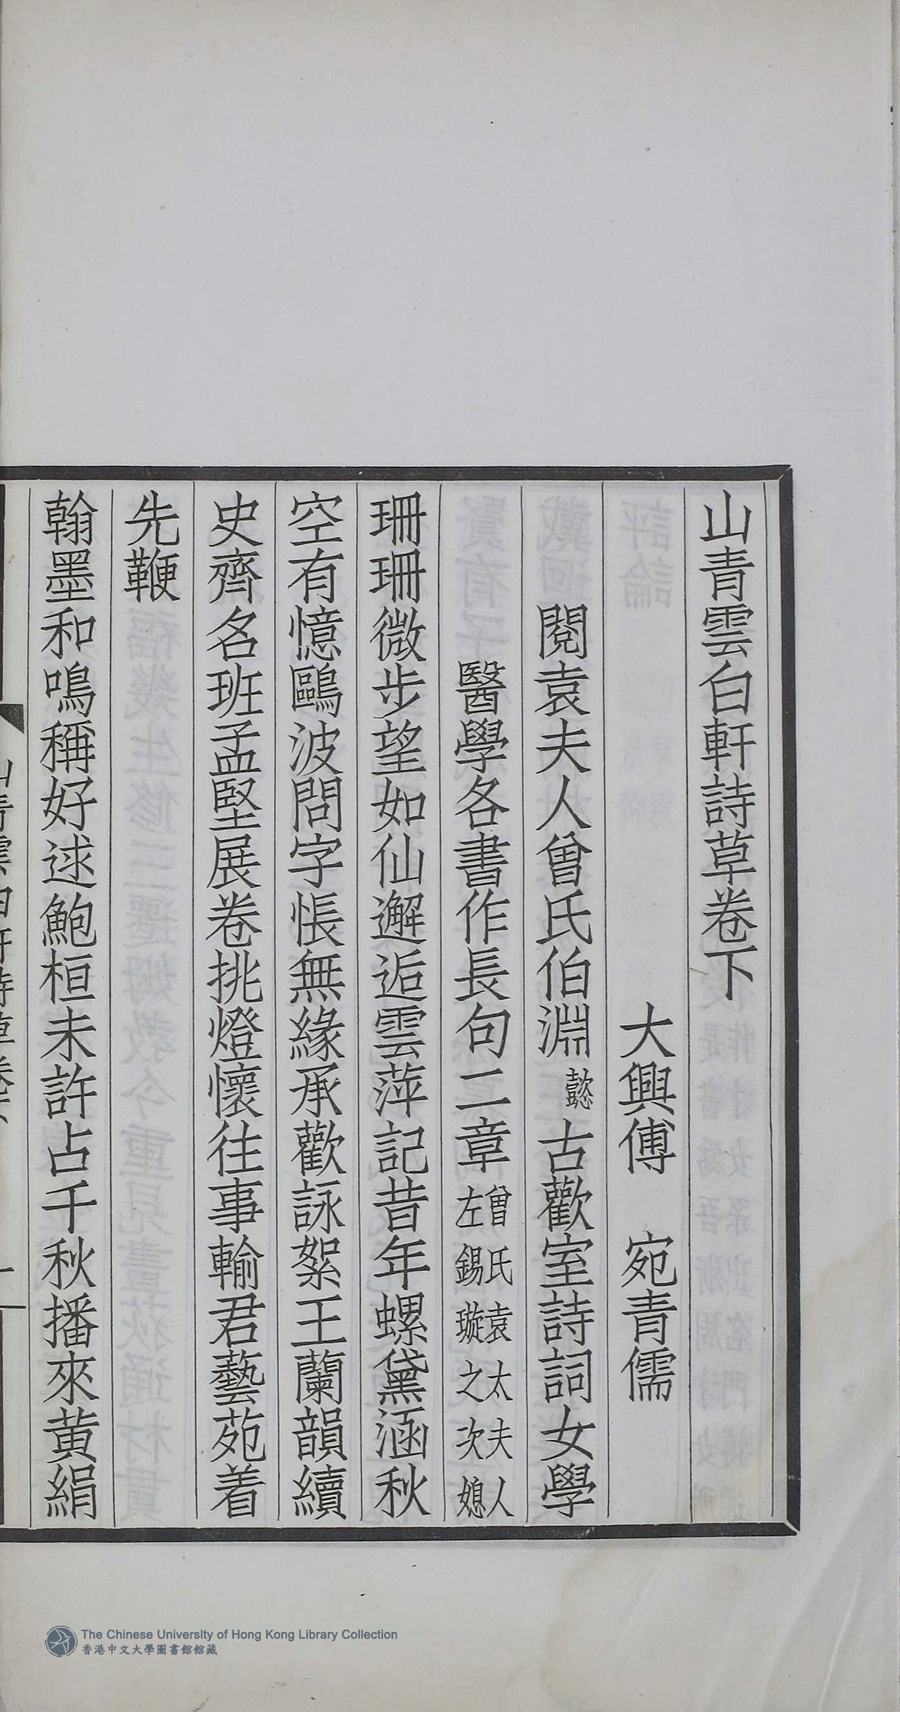 山青雲白軒詩草卷下
大興傅　宛青儒
閱袁夫人曾氏伯淵懿古歡室詩詞女學
醫學各書作長句二章曾氏袁太夫人左錫璇之次媳
珊珊微步望如仙邂逅雲萍記昔年螺黛涵秋
空有憶鷗波問字悵無緣承歡詠絮王蘭韻續
史齊名班孟堅展卷挑燈懷往事輸君藝苑着
先鞭
翰墨和鳴稱好逑鮑桓未許占千秋播來黃絹
The Chinese University of Hong Kong Library Collection
香港中文大學圖書館館藏